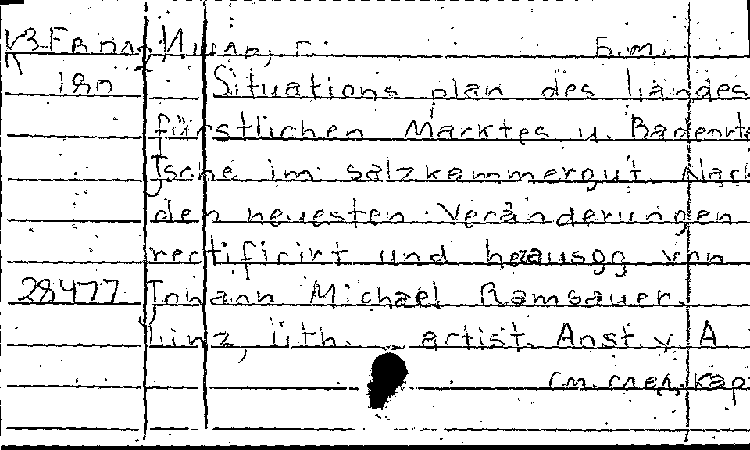 б.м.
180 Situationsplan des landes
fürstlichen Marktes u. Badeorte
Ische im Salzkammergut. Nach
den neuesten Veränderungen
rectificirt und herausgg von
28477 Johann Michael Ramsauer.
Linz, lith. artist. Anst v A
см. след. кар